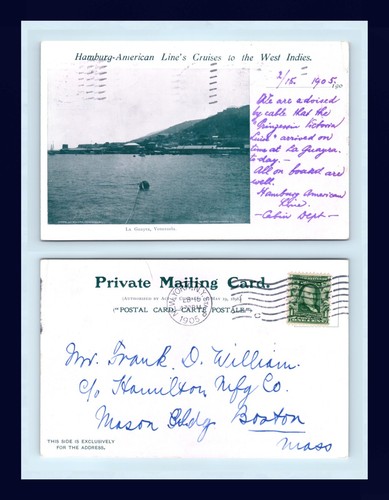 Hamburg-American Line's Cruises to the West Indies.
2/15 1905.
190
We are advised
by cable that the
"Prinzessin Victoria
Luise" arrived on
time at La Guayra
to-day. —
All on board are
well.
Hamburg American
Line.
— Cabin Dept —
La Guayra, Venezuela.
Private Mailing Card.
(AUTHORIZED BY ACT OF CONGRESS MAY 19, 1898)
("POSTAL CARD, CARTE POSTALE")
NEW YORK, N.Y.
FEB 15
1905
Mr. Frank D. William.
c/o Hamilton Mfg Co.
Mason Bldg Boston
Mass
THIS SIDE IS EXCLUSIVELY
FOR THE ADDRESS.